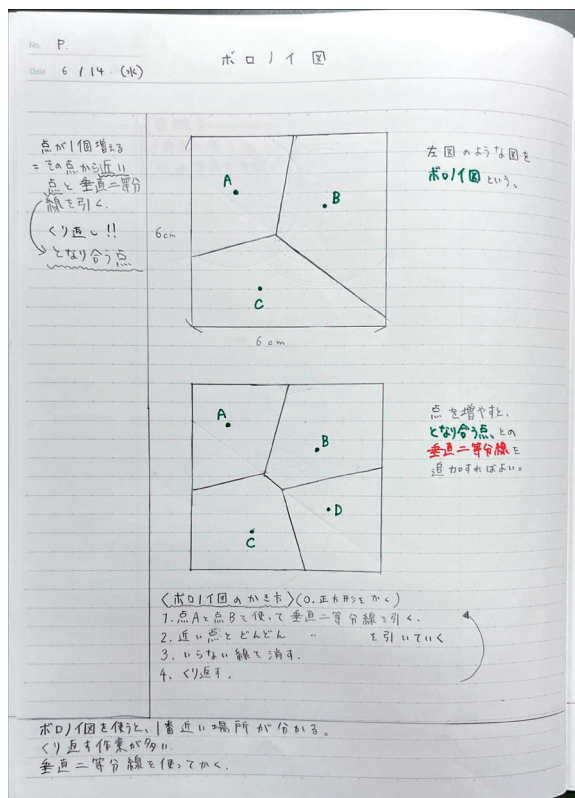 No. P.
Date 6 / 14 (水)
ボロノイ図
点が1個増える
=その点から近い
点と垂直二等分
線を引く.
くり返し!!
となり合う点
A
B
C
6cm
6cm
左図のような図を
ボロノイ図という。
A
B
C
D
点を増やすと、
となり合う点、との
垂直二等分線を
追加すればよい。
〈ボロノイ図のかき方〉(0.正方形をかく)
1.点Aと点Bを使って垂直二等分線を引く.
2.近い点とどんどん 〃 を引いていく
3.いらない線を消す.
4.くり返す.
ボロノイ図を使うと、1番近い場所が分かる。
くり返す作業が多い.
垂直二等分線を使ってかく.